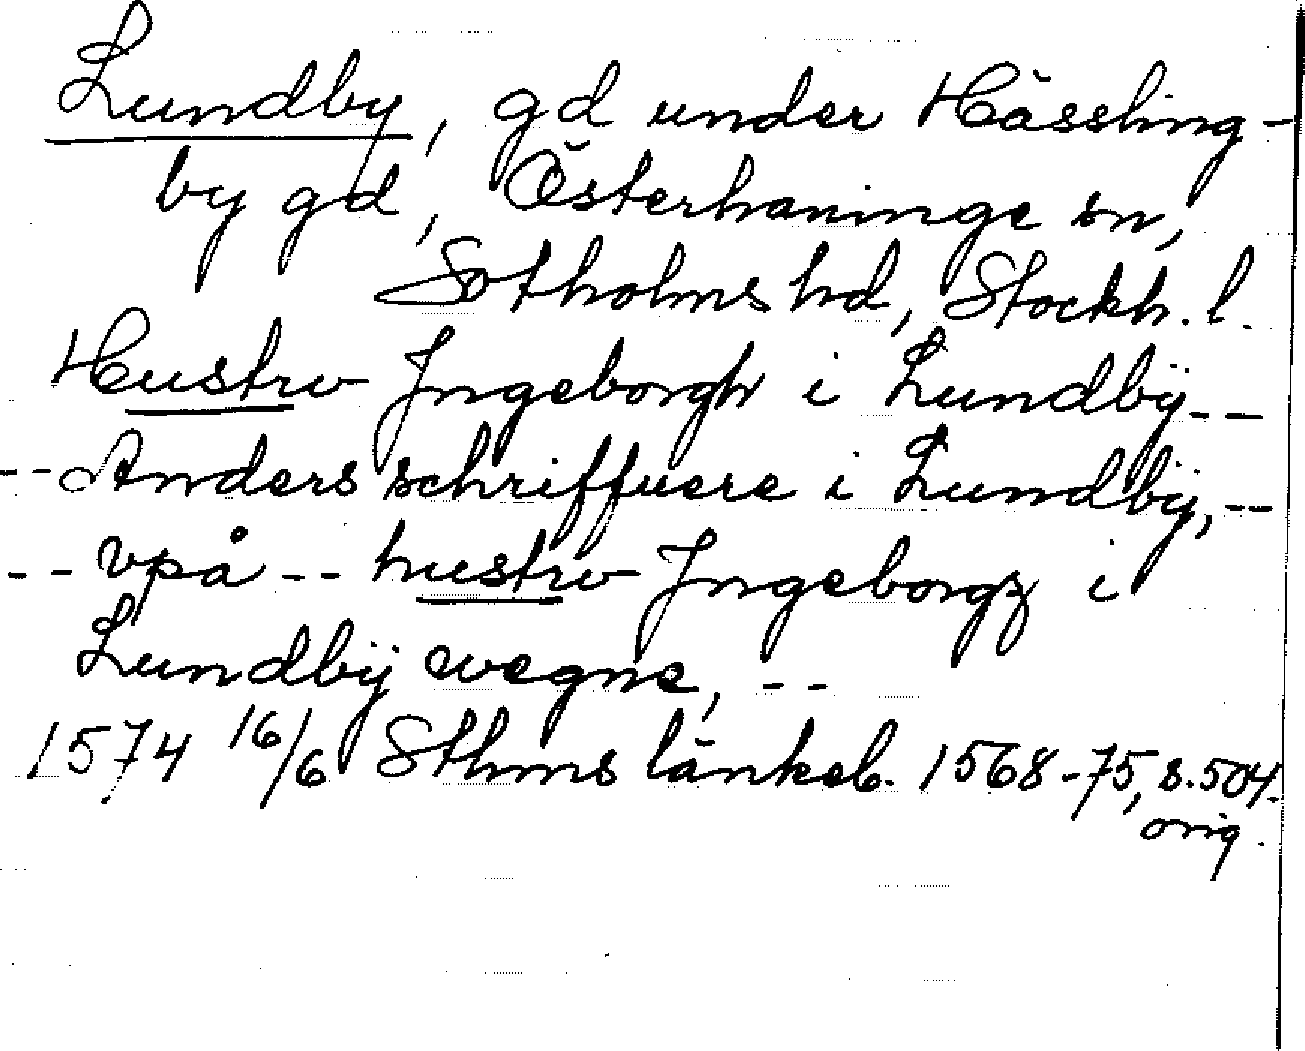 Lundby, gd under Hässling-
by gd, Österhaninge sn,
Sotholms hd, Stockh. l.
Hustrv Jngeborgh i Lundbÿ--
--Anders schriffuere i Lundbÿ,--
--vpå--hustrv Jngeborgz i
Lundbÿ wegne, --
1574 16/6 Sthms tänkeb. 1568-75, s. 504.
orig.